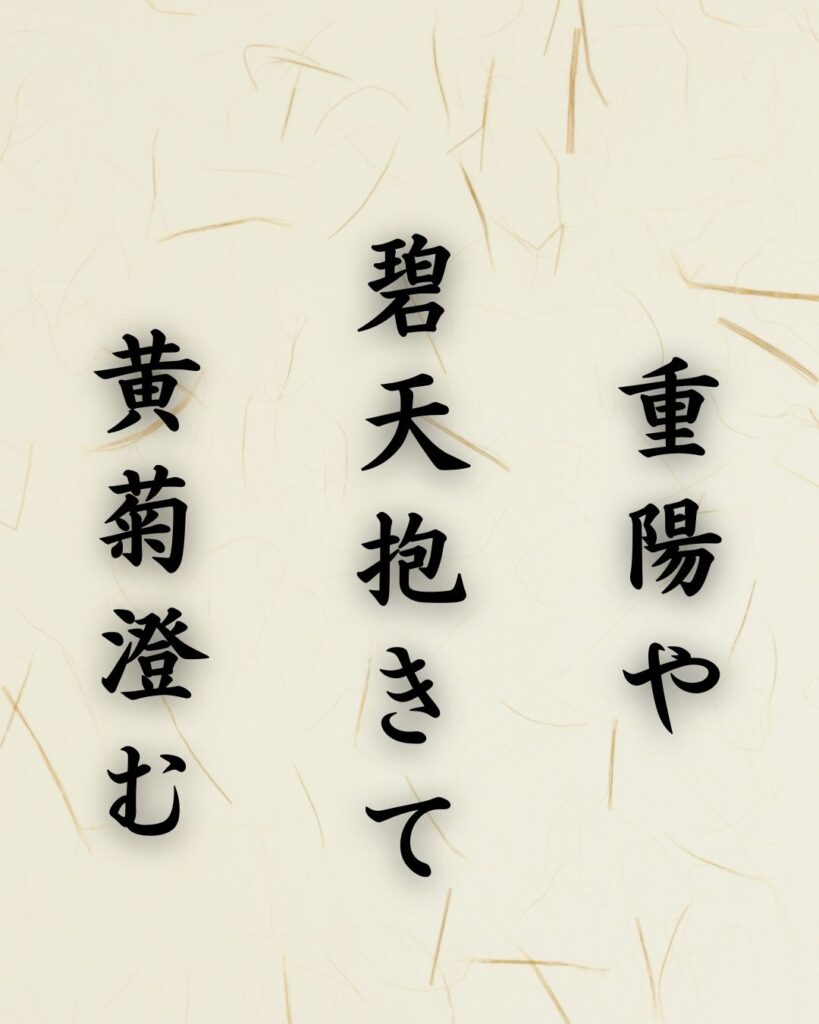 重陽や
碧天抱きて
黄菊澄む